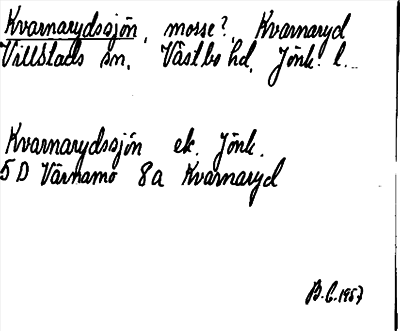 Kvarnarydssjön, mosse?, Kvarnaryd
Villstads sn. Västbo hd. Jönk. l.
Kvarnarydssjön ek. Jönk.
5D Värnamo 8a Kvarnaryd
B.C. 1957